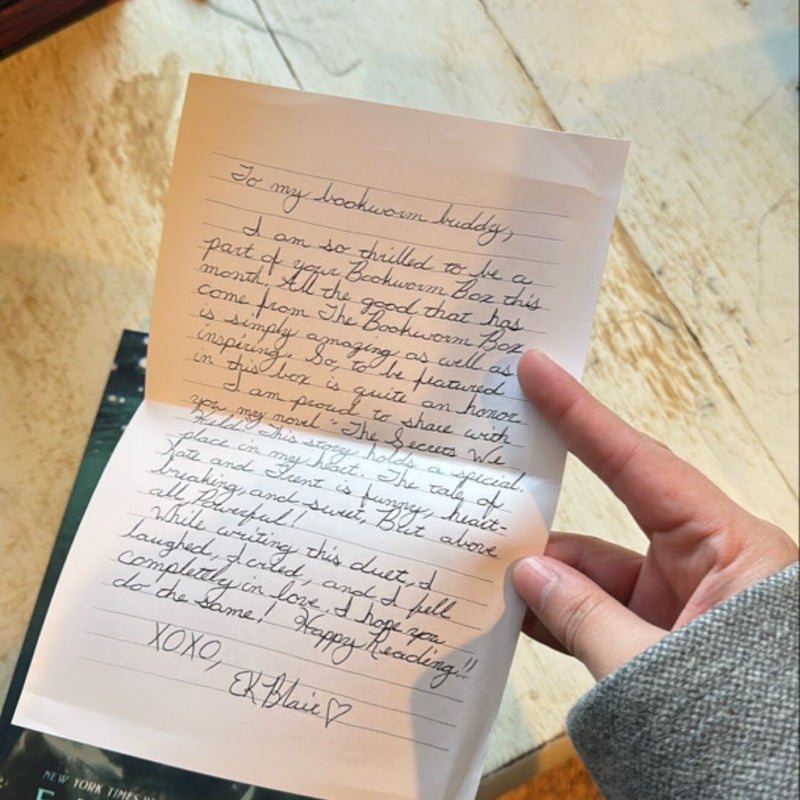 To my bookworm buddy,
I am so thrilled to be a
part of your Bookworm Box this
month. All the good that has
come from The Bookworm Box
is simply amazing as well as
inspiring. So, to be featured
in this box is quite an honor.
I am proud to share with
you my novel "The Secrets We
Hold. This story holds a special
place in my heart. The tale of
Kate and Trent is funny, heart-
breaking, and sweet, but above
all Powerful!
While writing this duet, I
laughed, I cried, and I fell
completely in love. I hope you
do the same! Happy Reading!!
XOXO,
EK Blair♡
NEW YORK TIMES